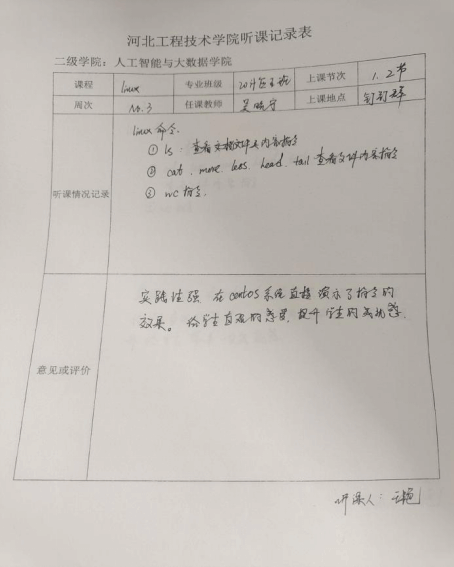 河北工程技术学院听课记录表
二级学院：人工智能与大数据学院
课程 linux 专业班级 上课节次 1.2节
周次 No.3 任课教师 吴晓宇 上课地点 钉钉
听课情况记录
linux 命令.
① ls 查看 文件 内容指令
② cat . more . less . head . tail 查看文件内容指令
③ wc 指令.
意见或评价
实践性强 在 centos 系统直接演示了指令的
效果。给学生直观的感受, 提升学生的
听课人：